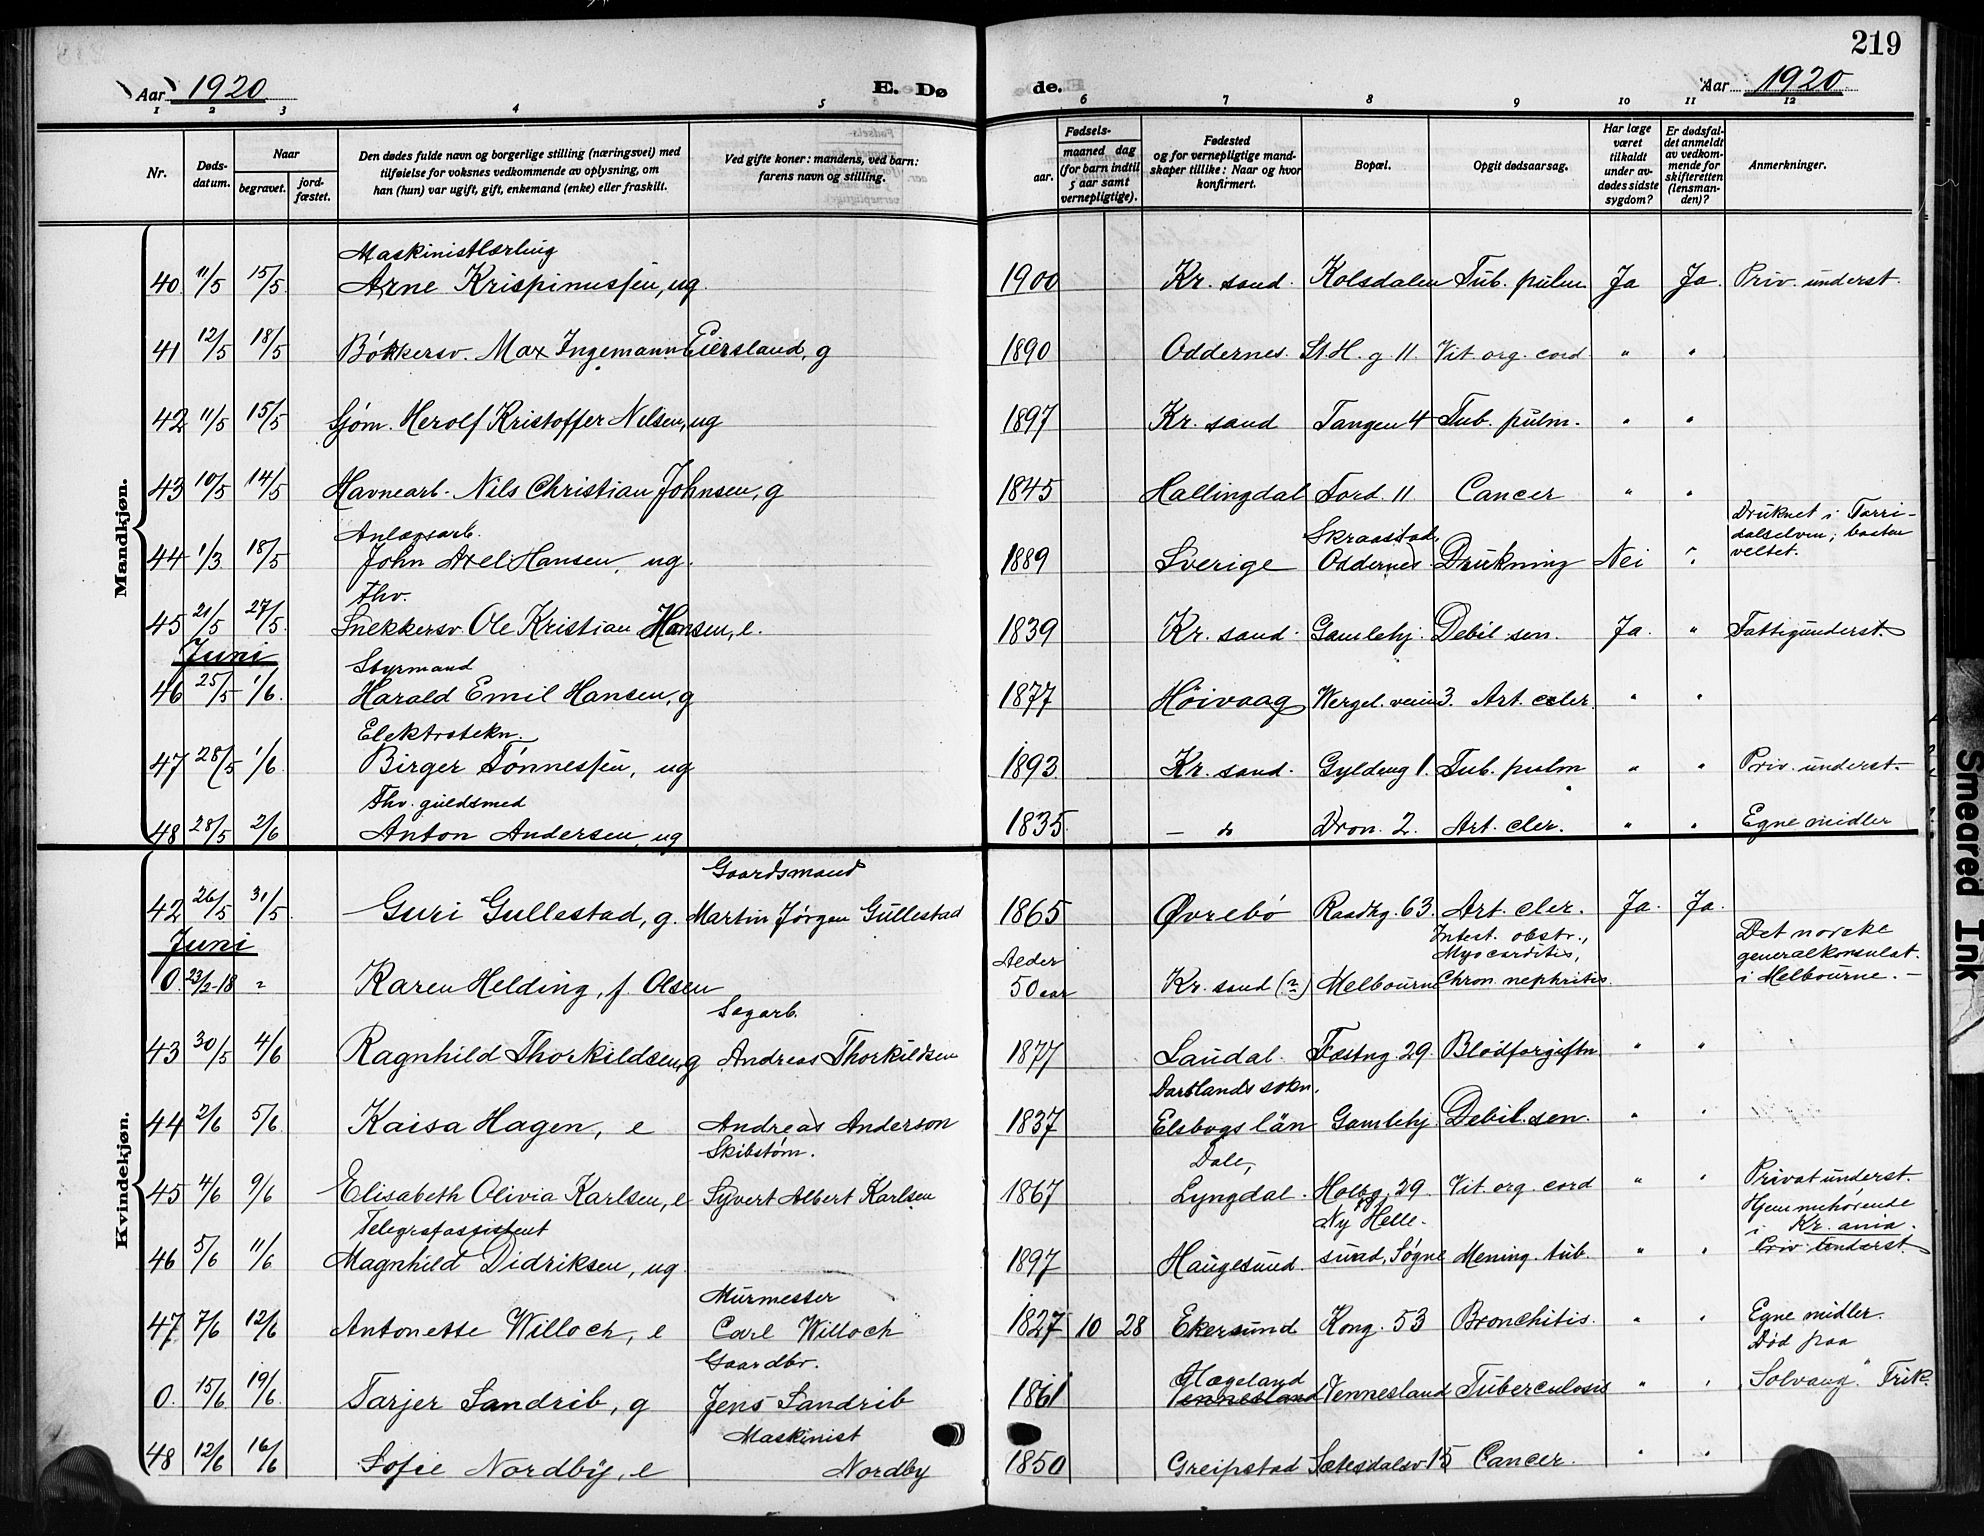 219
Aar 1920 E. Dø
de. Aar 1920
1 2 3 4 5
6 7 8 9 10 11 12
Nr. Døds-datum. Naar begravet. jord-fæstet. Den dødes fulde navn og borgerlige stilling (næringsvei) med tilføielse for voksnes vedkommende av oplysning, om han (hun) var ugift, gift, enkemand (enke) eller fraskilt. Ved gifte koner: mandens, ved barn: farens navn og stilling.
Fødsels- aar. maaned dag (for barn indtil 5 aar samt vernepligtige). Fødested og for vernepligtige mand-skaper tillike: Naar og hvor konfirmert. Bopæl. Opgit dødsaarsag. Har læge været tilkaldt under av-dødes sidste sygdom? Er dødsfal-det anmeldt av vedkom-mende for skifteretten (lensman-den)? Anmerkninger.
Mandkjøn.
Maskinistlærling
40 11/5 15/5 Arne Krispinussen, ug. 1900 Kr. sand. Kolsdalen Tub. pulm Ja Ja. Priv. underst.
41 12/5 18/5 Bøkkersv. Max Ingemann Eiersland, g 1890 Oddernes. St. H. g 11. Vit. org. cord " "
42 11/5 15/5 Sjøm. Herolf Kristoffer Nilsen, ug 1897 Kr. sand Tangen 4 Tub. pulm. " "
43 10/5 14/5 Havnearb. Nils Christian Johnsen, g 1845 Hallingdal Tord. 11 Cancer " "
Anlægsarb. Skraastad, Druknet i Torri-
44 1/3 18/5 John Axel Hansen, ug. 1889 Sverige Oddernes. Drukning Nei " dalselven; baaten veltet.
Fhv.
45 21/5 27/5 Snekkersv. Ole Kristian Hansen, e. 1839 Kr. sand. Gamlehj. Debil. sen. Ja. " Fattigunderst.
Juni
Styrmand
46 25/5 1/6. Harald Emil Hansen, g 1877 Høivaag Wergel. veien 3. Art. scler. " "
Elektrotekn.
47 28/5 1/6 Birger Tønnessen, ug 1893 Kr. sand. Gyldeng 1. Tub. pulm " " Priv. underst.
Fhv. guldsmed
48 28/5 2/6 Anton Andersen, ug 1835 — " Dron. 2. Art. cler. " " Egne midler
Kvindekjøn.
Gaardsmand
42 26/5 31/5 Guri Gullestad, g. Martin Jørgen Gullestad 1865 Øvrebø Raadhg. 63. Art. cler. Ja. Ja.
Juni
Alder Intest. obstr., Myocarditis, Det norske generalkonsulat
0. 23/2-18 " Karen Helding, f. Olsen 50 aar Kr. sand (?) Melbourne Chron. nephritis. i Melbourne. —
Sagarb.
43 30/5 4/6 Ragnhild Thorkildsen, g Andreas Thorkildsen 1877 Laudal. Fæstng. 29. Blodforgiftn. " "
Dartlands sokn.
44 2/6 5/6 Kaisa Hagen, e Andreas Anderson 1837 Elsbogs län Gamlehj Debil. sen. " "
Skibstøm. Dale,
45 4/6 9/6 Elisabeth Olivia Karlsen, e Syvert Albert Karlsen 1867 Lyngdal. Holbg. 29. Vit. org. cord " " Privat underst.
Telegrafassistent Ny Helle- Hjemmehørende i Kr. ania.
46 5/6 11/6 Magnhild Didriksen, ug 1897 Haugesund. sund, Søgne Mening. tub. " " Priv. underst
Murmester
47 7/6 12/6 Antonette Willoch, e Carl Willoch 1827 10 28 Ekersund Kong. 53 Bronchitis. " " Egne midler.
Gaardbr. Hægeland Død paa
0. 15/6 19/6. Tarjer Sandrib, g Jens Sandrib 1861 Vennesland Vennesland Tuberculosis " " "Solvang". Frik.
Maskinist
48 12/6 16/6 Sofie Nordby, e Nordby 1850 Greipstad Sætesdalsv 15 Cancer. " "
Smeared Ink